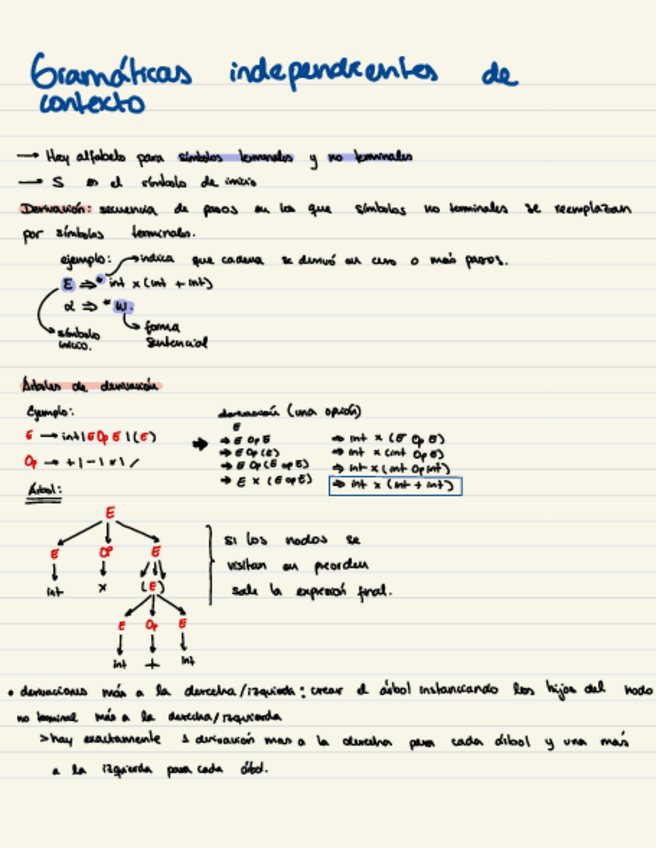 Gramáticas independientes de
contexto
→ Hay alfabeto para símbolos terminales y no terminales
→ S es el símbolo de inicio
Derivación: secuencia de pasos en los que símbolos no terminales se reemplazan
por símbolos terminales.
ejemplo: → indica que cadena se derivó en cero o más pasos.
E ⇒* int x (int + int)
α ⇒* w.
símbolo
inicio.
forma
sentencial
Árboles de derivación
Ejemplo:
E → int | E Op E | (E)
Op → + | - | x | /
derivación (una opción)
E
⇒ E Op E
⇒ E Op (E)
⇒ E Op (E Op E)
⇒ E x (E Op E)
⇒ int x (E Op E)
⇒ int x (int Op E)
⇒ int x (int Op int)
⇒ int x (int + int)
Árbol:
E
E OP E
int x (E)
E Op E
int + int
si los nodos se
visitan en preorden
sale la expresión final.
• derivaciones más a la derecha/izquierda: crear el árbol instanciando los hijos del nodo
no terminal más a la derecha/izquierda
> hay exactamente 1 derivación mas a la derecha para cada árbol y una más
a la izquierda para cada árbol.